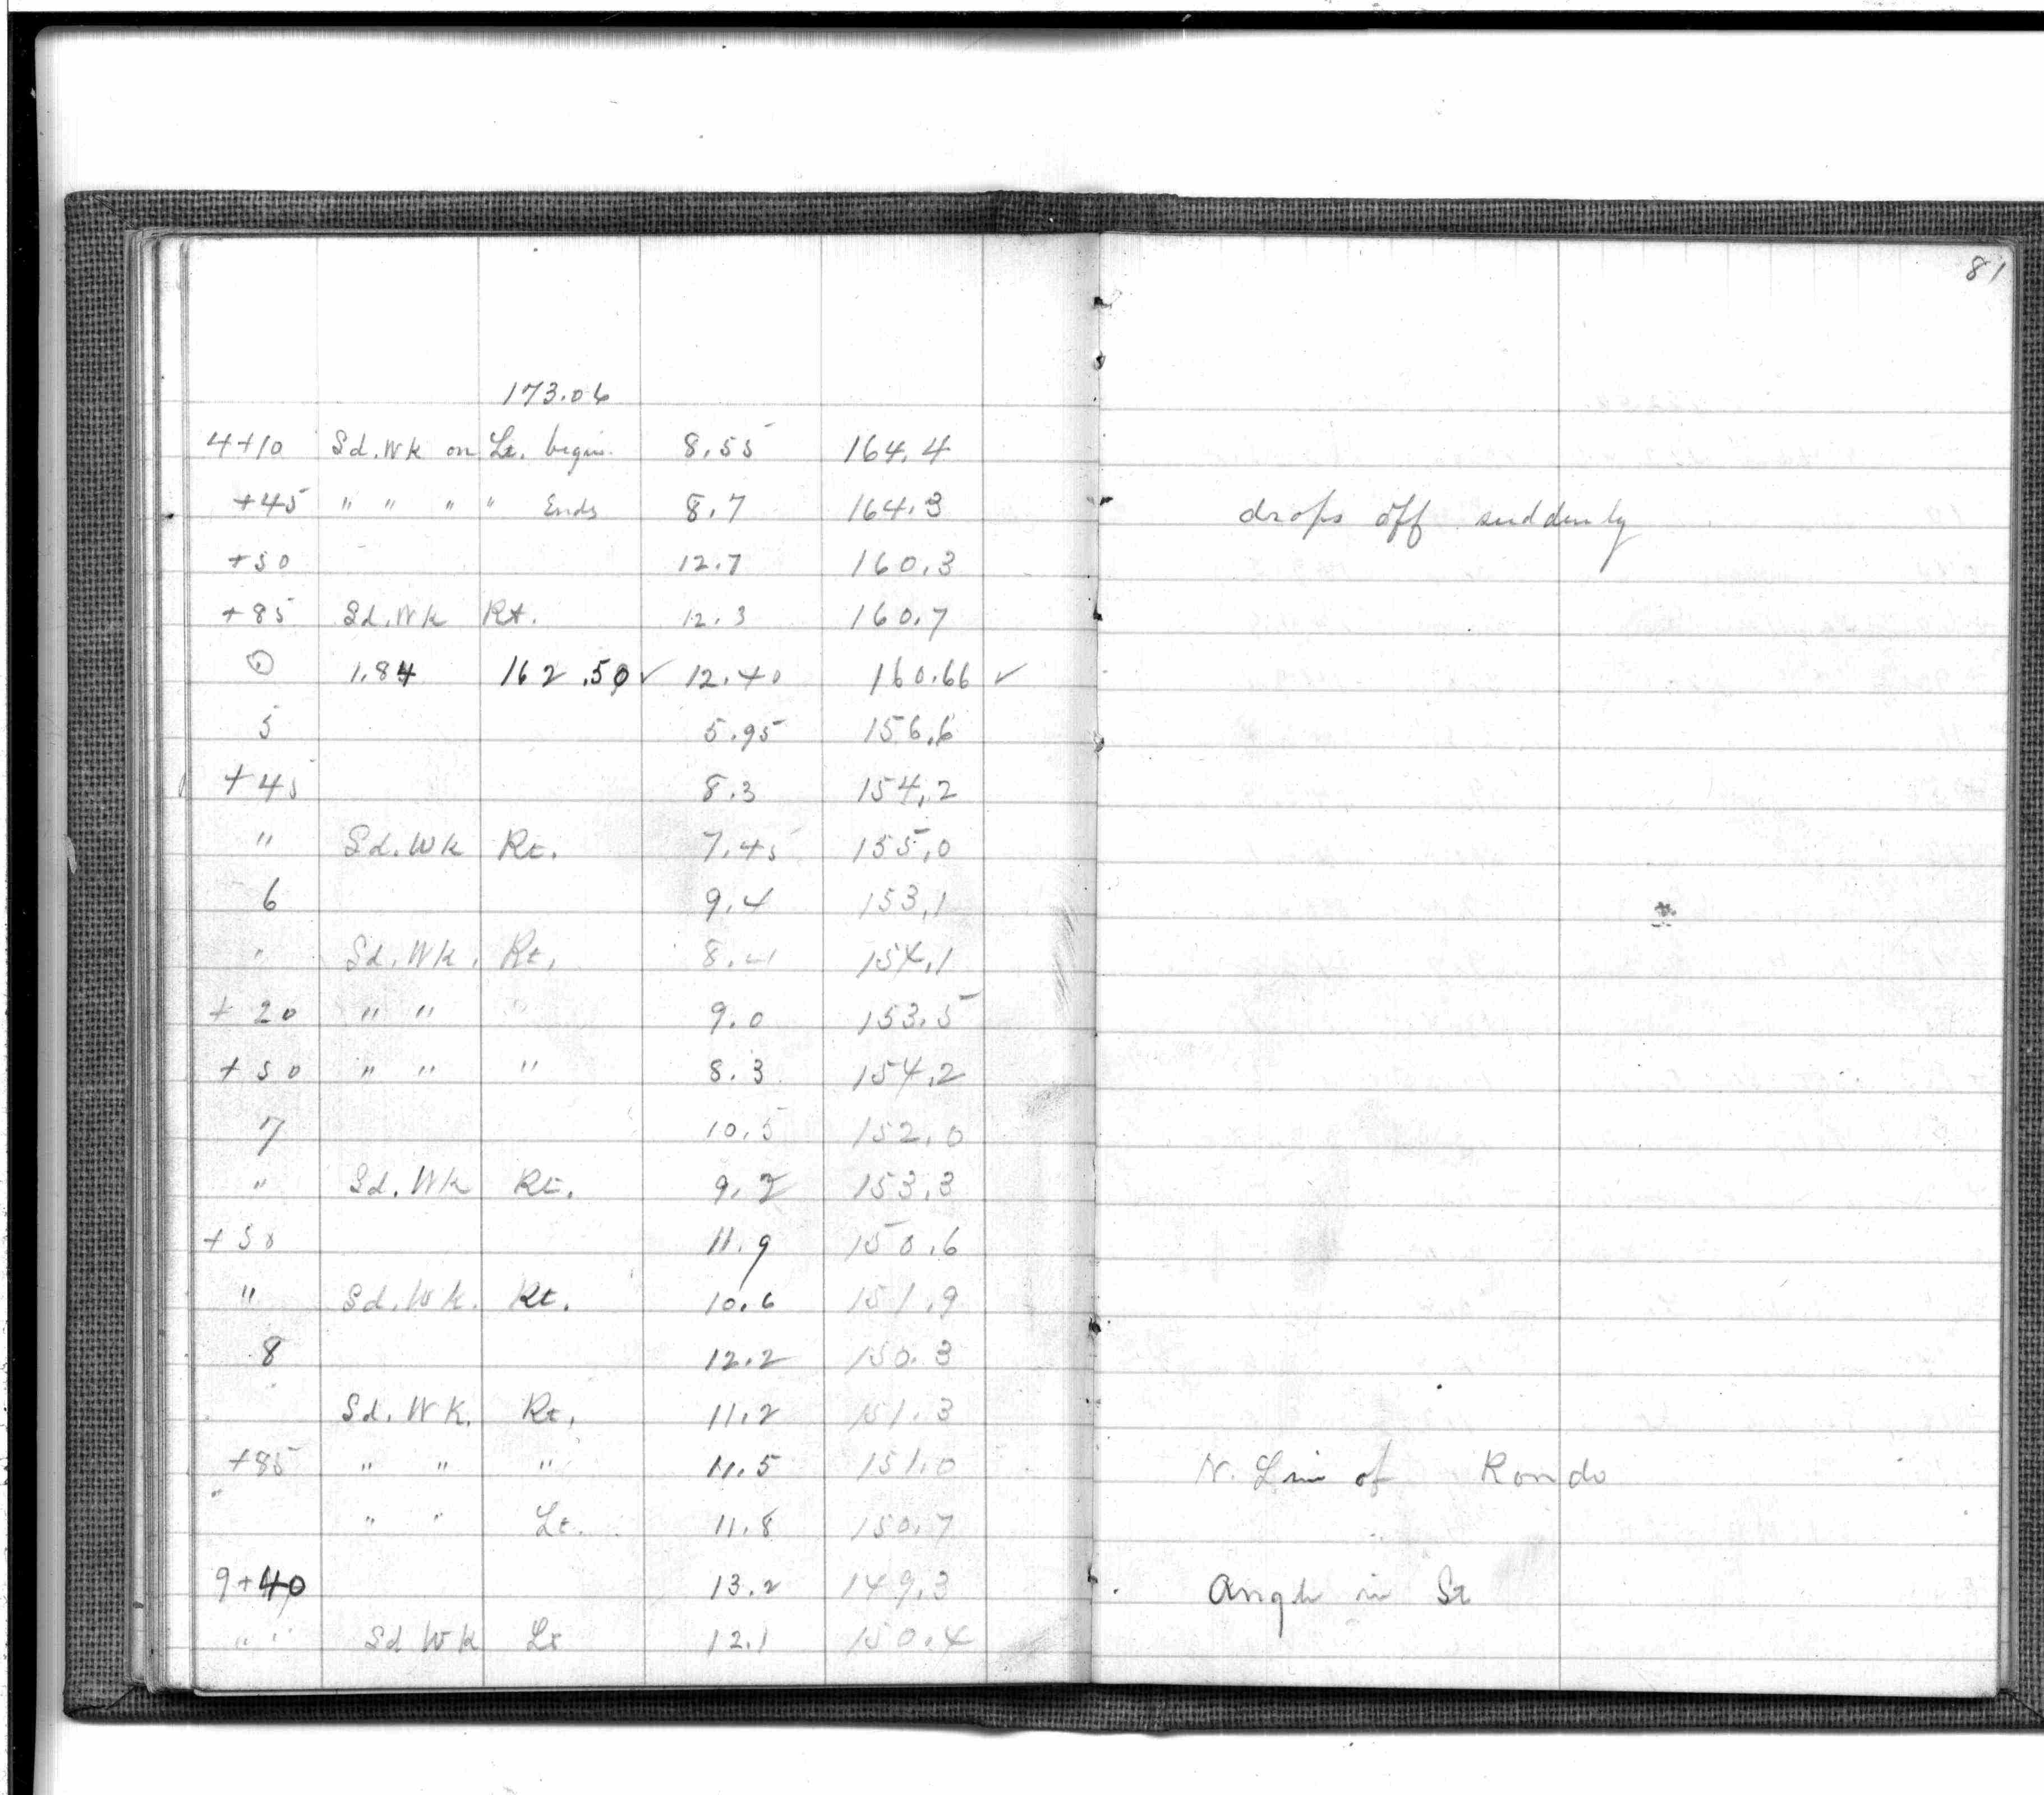 81
173.06
4+10 Sd. Wk on Lt. begins 8.55 164.4
+45 " " " " Ends 8.7 164.3 drops off suddenly
+50 12.7 160.3
+85 Sd. Wk Rt. 12.3 160.7
⊙ 1.84 162.50 ✓ 12.40 160.66 ✓
5 5.95 156.6
+45 8.3 154.2
" Sd. Wk Rt. 7.45 155.0
6 9.4 153.1
" Sd. Wk. Rt. 8.4 154.1
+20 " " 9.0 153.5
+50 " " " 8.3 154.2
7 10.5 152.0
" Sd. Wk Rt. 9.2 153.3
+50 11.9 150.6
" Sd. Wk. Rt. 10.6 151.9
8 12.2 150.3
Sd. Wk. Rt. 11.2 151.3
+85 " " " 11.5 151.0 N. Line of Rondo
" " " Lt. 11.8 150.7
9+40 13.2 149.3 Angle in St
" " Sd Wk Lt 12.1 150.4